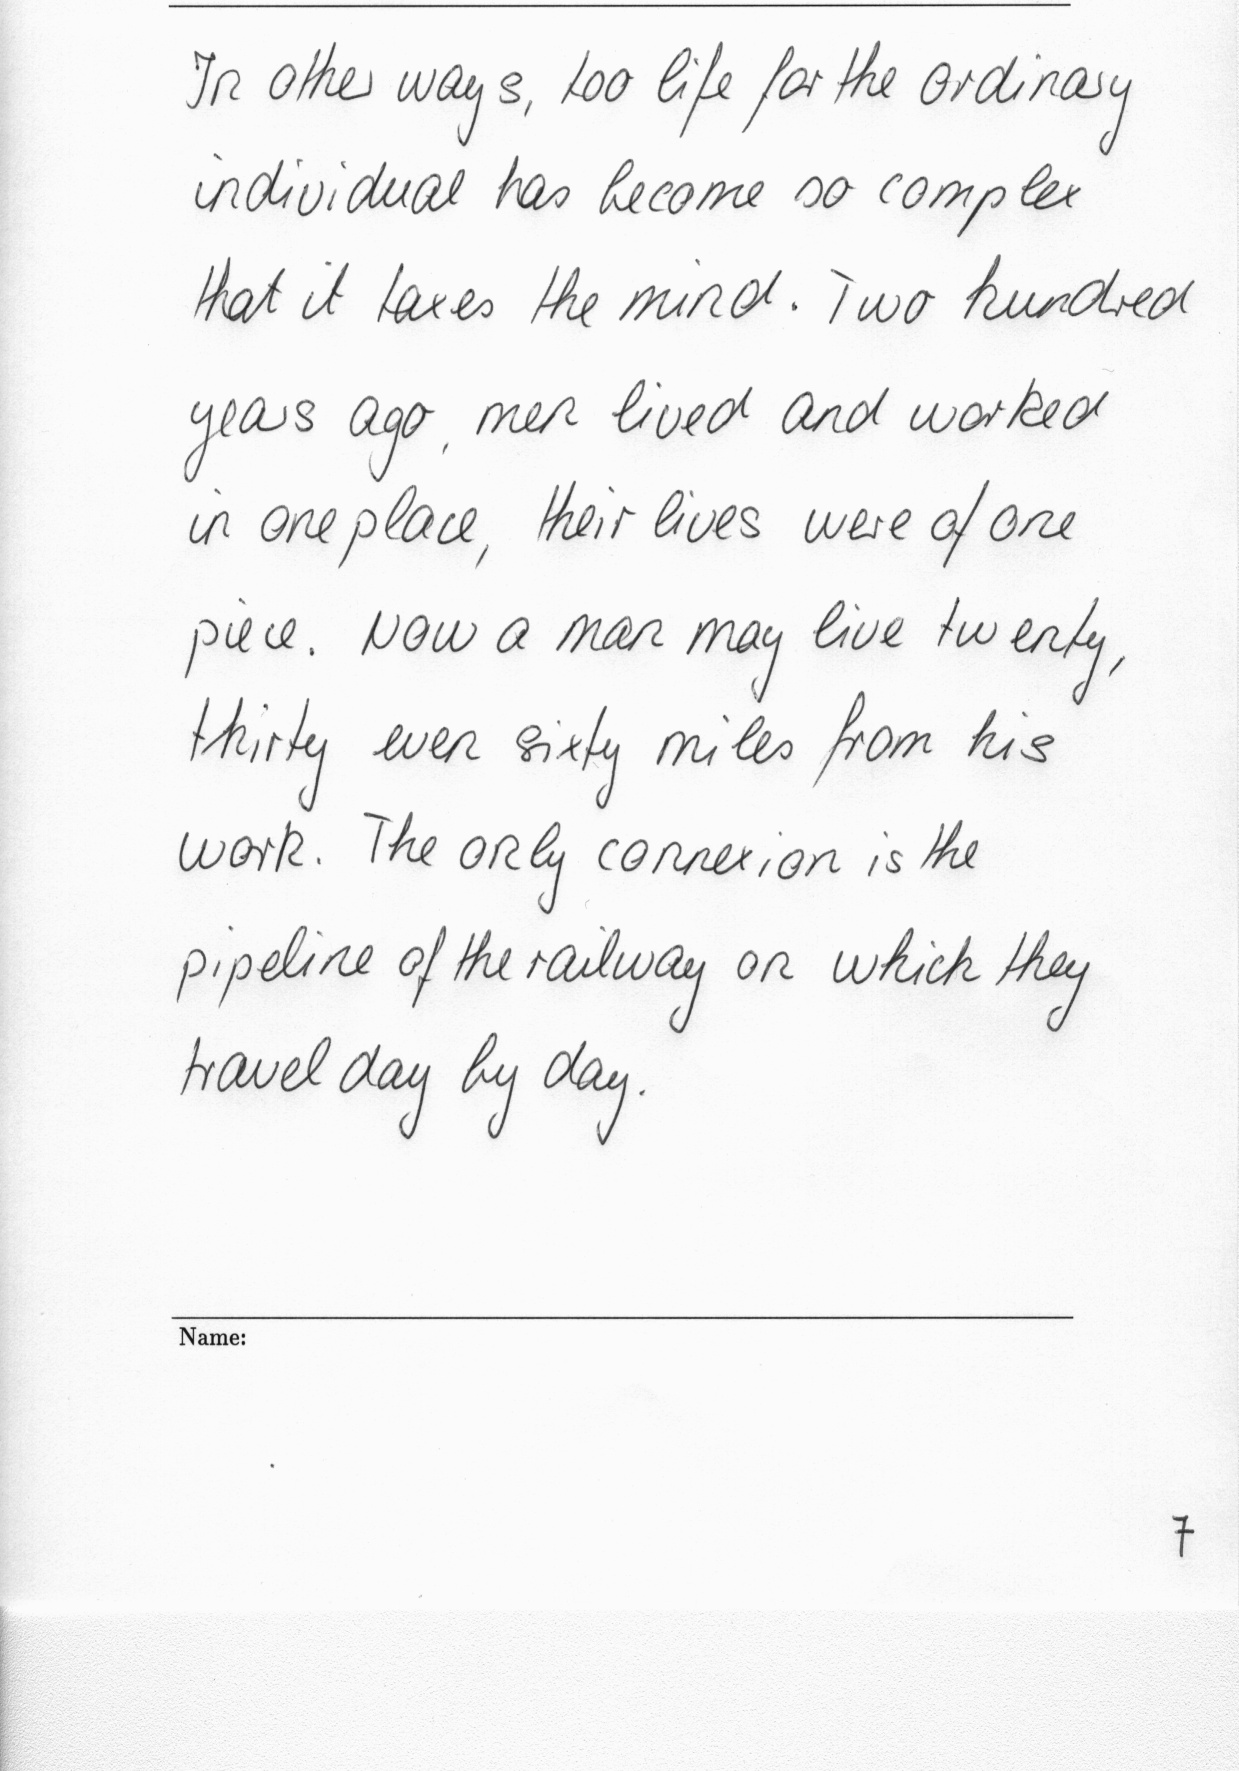 In other ways, too life for the ordinary
individual has become so complex
that it taxes the mind. Two hundred
years ago, men lived and worked
in one place, their lives were of one
piece. Now a man may live twenty,
thirty even sixty miles from his
work. The only connexion is the
pipeline of the railway on which they
travel day by day.
Name:
7